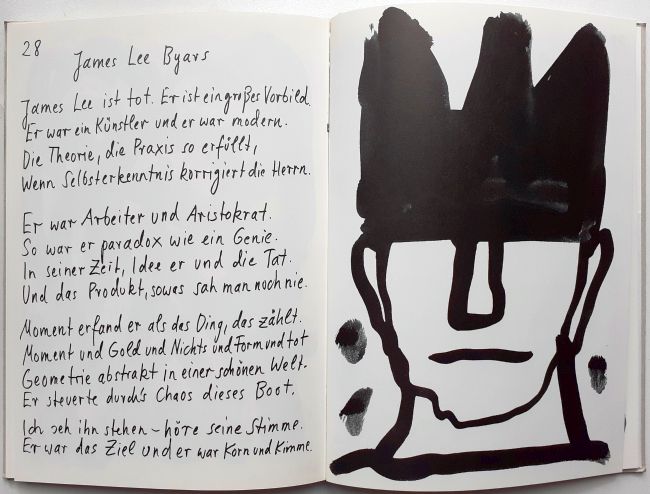 28
James Lee Byars
James Lee ist tot. Er ist ein großes Vorbild.
Er war ein Künstler und er war modern.
Die Theorie, die Praxis so erfüllt,
Wenn Selbsterkenntnis korrigiert die Herrn.
Er war Arbeiter und Aristokrat.
So war er paradox wie ein Genie.
In seiner Zeit, Idee er und die Tat.
Und das Produkt, sowas sah man noch nie.
Moment erfand er als das Ding, das zählt.
Moment und Gold und Nichts und Form und tot
Geometrie abstrakt in einer schönen Welt.
Er steuerte durch's Chaos dieses Boot.
Ich seh ihn stehen – höre seine Stimme.
Er war das Ziel und er war Korn und Kimme.